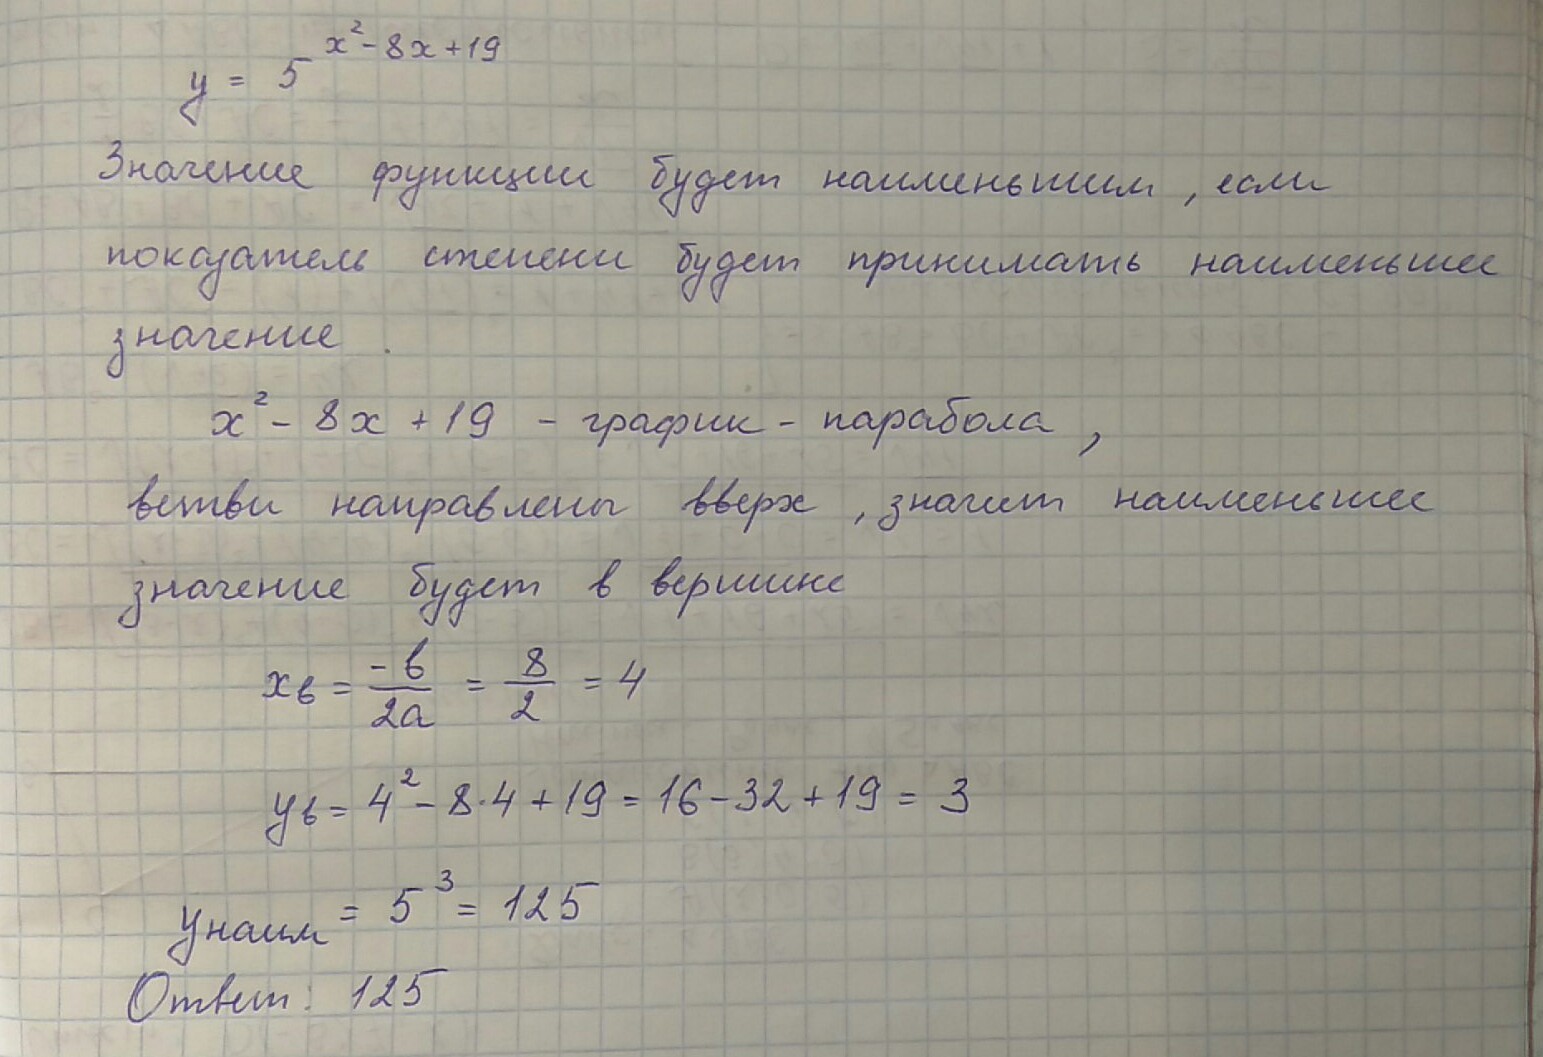 y = 5^(x² - 8x + 19)
Значение функции будет наименьшим, если
показатель степени будет принимать наименьшее
значение.
x² - 8x + 19 - график - парабола,
ветви направлены вверх, значит наименьшее
значение будет в вершине
xв = -b/2a = 8/2 = 4
yв = 4² - 8·4 + 19 = 16 - 32 + 19 = 3
yнаим = 5³ = 125
Ответ: 125